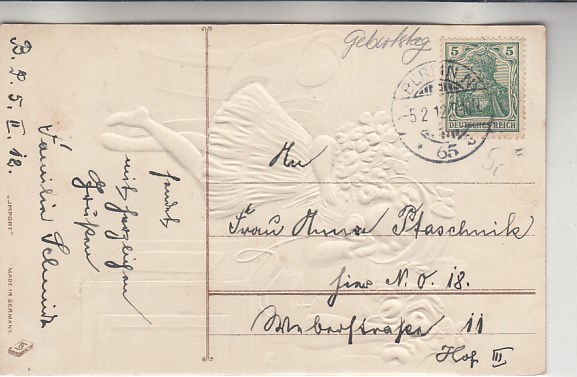 B. d. 5. II. 12.
sendet
mit herzlichen
Grüßen
Familie Schmidt
"IMPORT"
MADE IN GERMANY
Geburtstag
5 5
DEUTSCHES REICH
BERLIN N.
5.2.12
65
5,-
An
Frau Anna Ptaschnik
hier N.O. 18.
Weberstraße 11
Hof III